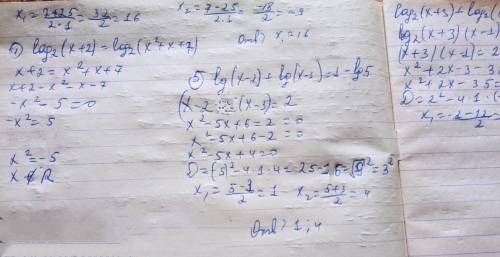 x₁ = 7+25/2·1 = 32/2 = 16
x₂ = 7-25/2·1 = -18/2 = -9
Отв) x₁ = 16
log₂(x+2) = log₂(x²+x+7)
x+2 = x²+x+7
x+2-x²-x-7
-x²-5=0
-x²=5
x²=-5
x ∉ R
5) lg(x-2)+lg(x-3)=1-lg5
(x-2 (x-3)=2
x²-5x+6=2=0
x²-5x+6-2=0
x²-5x+4=0
D=(5)²-4·1·4=25-16=√9²=3²
x₁=5-3/2=1 x₂=5+3/2=4
Отв) 1; 4
log₂(x+3)+log₂(
log₂(x+3)(x-1
(x+3)(x-1)=2
x²+2x-3-3
x²+2x-35=
D=2²-4·1·(-
x₁=-2-12/2=